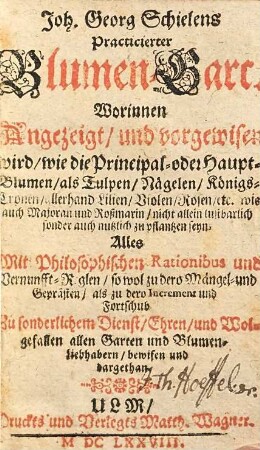 Joh. Georg Schielens
Practicierter
Blumen-Gart.
Worinnen
Angezeigt/und vorgewisen
wird/wie die Principal-oder Haupt-
Blumen/als Tulpen/Nägelen/Königs-
Cronen/allerhand Lilien/Violen/Rosen/etc. wie
auch Majoran und Roßmarin/nicht allein lustbarlich
sonder auch nutzlich zu pflantzen seyn.
Alles
Mit Philosophischen Rationibus und
Vernunfft-Reglen/so wol zu dero Mängel-und
Geprästen/als zu dero Increment und
Fortschub
Zu sonderlichem Dienst/Ehren/und Wol-
gefallen allen Garten und Blumen-
liebhabern/bewisen und
dargethan
J. Th. Hoeffeler.
ULM/
Druckts und Verlegts Matth. Wagner.
M DC LXXVIII.